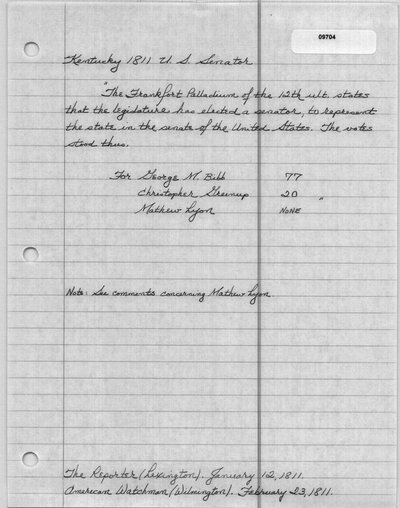 09704
Kentucky 1811 U.S. Senator
"The Frankfort Palladium of the 12th ult. states
that the legislature has elected a senator, to represent
the state in the senate of the United States. The votes
stood thus.
For George M. Bibb 77
Christopher Greenup 20 "
Mathew Lyon NONE
Note: See comments concerning Mathew Lyon.
The Reporter (Lexington). January 12, 1811.
American Watchman (Wilmington). February 23, 1811.